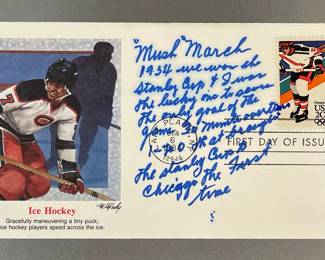 "Mush" March
1934 we won the
Stanley Cup & I was
the lucky one to score
the only goal of the
game. 30 minutes overtime
1-0 that brought
the Stanley Cup to
Chicago the First
time
PLACID
JAN
6
12946
USA
20c
FIRST DAY OF ISSUE
Ice Hockey
Gracefully maneuvering a tiny puck,
ice hockey players speed across the ice.